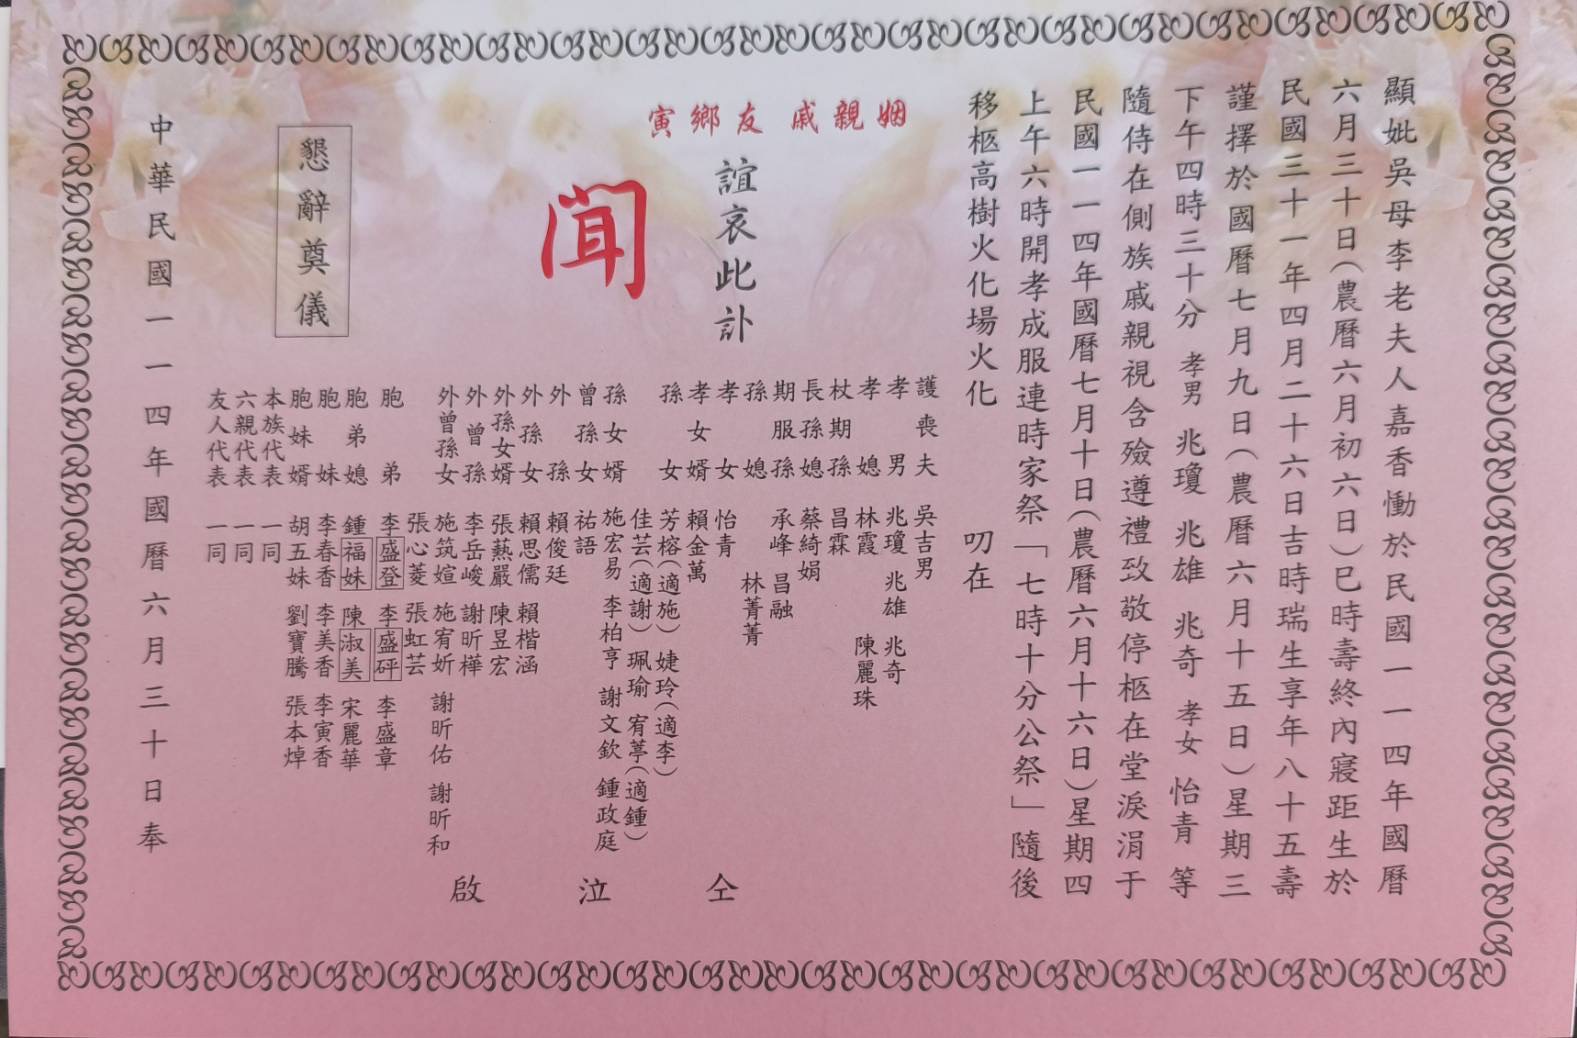 顯妣吳母李老夫人嘉香慟於民國一一四年國曆
六月三十日(農曆六月初六日)巳時壽終內寢距生於
民國三十一年四月二十六日吉時瑞生享年八十五壽
謹擇於國曆七月九日(農曆六月十五日)星期三
下午四時三十分 孝男 兆瓊 兆雄 兆奇 孝女 怡青 等
隨侍在側族戚親視含殮遵禮致敬停柩在堂淚涓于
民國一一四年國曆七月十日(農曆六月十六日)星期四
上午六時開孝成服連時家祭「七時十分公祭」隨後
移柩高樹火化場火化 叨在
姻親戚 友鄉寅
誼哀此訃
聞
護喪夫 吳吉男
孝男 兆瓊 兆雄 兆奇
孝媳 林霞 陳麗珠
杖期孫 昌霖
長孫媳 蔡綺娟
期服孫 承峰 昌融
孫媳 林菁菁
孝女 怡青
孝女婿 賴金萬
孫女 芳榕(適施) 婕玲(適李)
佳芸(適謝) 珮瑜 宥葶(適鍾)
孫女婿 施宏易 李柏亨 謝文欽 鍾政庭
曾孫女 祐語
外孫 賴俊廷
外孫女 賴思儒 賴楷涵
外孫女婿 張爇嚴 陳昱宏
外曾孫 李岳峻 謝昕樺
外曾孫女 施筑媗 施宥妡 謝昕佑 謝昕和
張心菱 張虹芸
胞弟 李盛登 李盛砰 李盛章
胞弟媳 鍾福妹 陳淑美 宋麗華
胞妹 李春香 李美香 李寅香
胞妹婿 胡五妹 劉寶騰 張本焯
本族代表 一同
六親代表 一同
友人代表 一同
仝 泣 啟
懇辭奠儀
中華民國一一四年國曆六月三十日奉